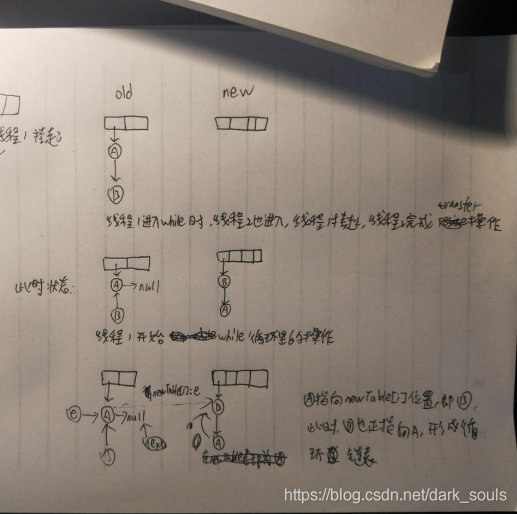 old new
线程1挂起
A
B
线程1进入while时,线程2也进入,线程1挂起,线程2完成transfer操作
此时状态:
A → null B
B A
线程1开始while循环里的操作
newTable[i]=e
e → A → null B
next
A
A指向newTable[i]位置,即B,
此时,B也正指向A,形成循
环链表
https://blog.csdn.net/dark_souls